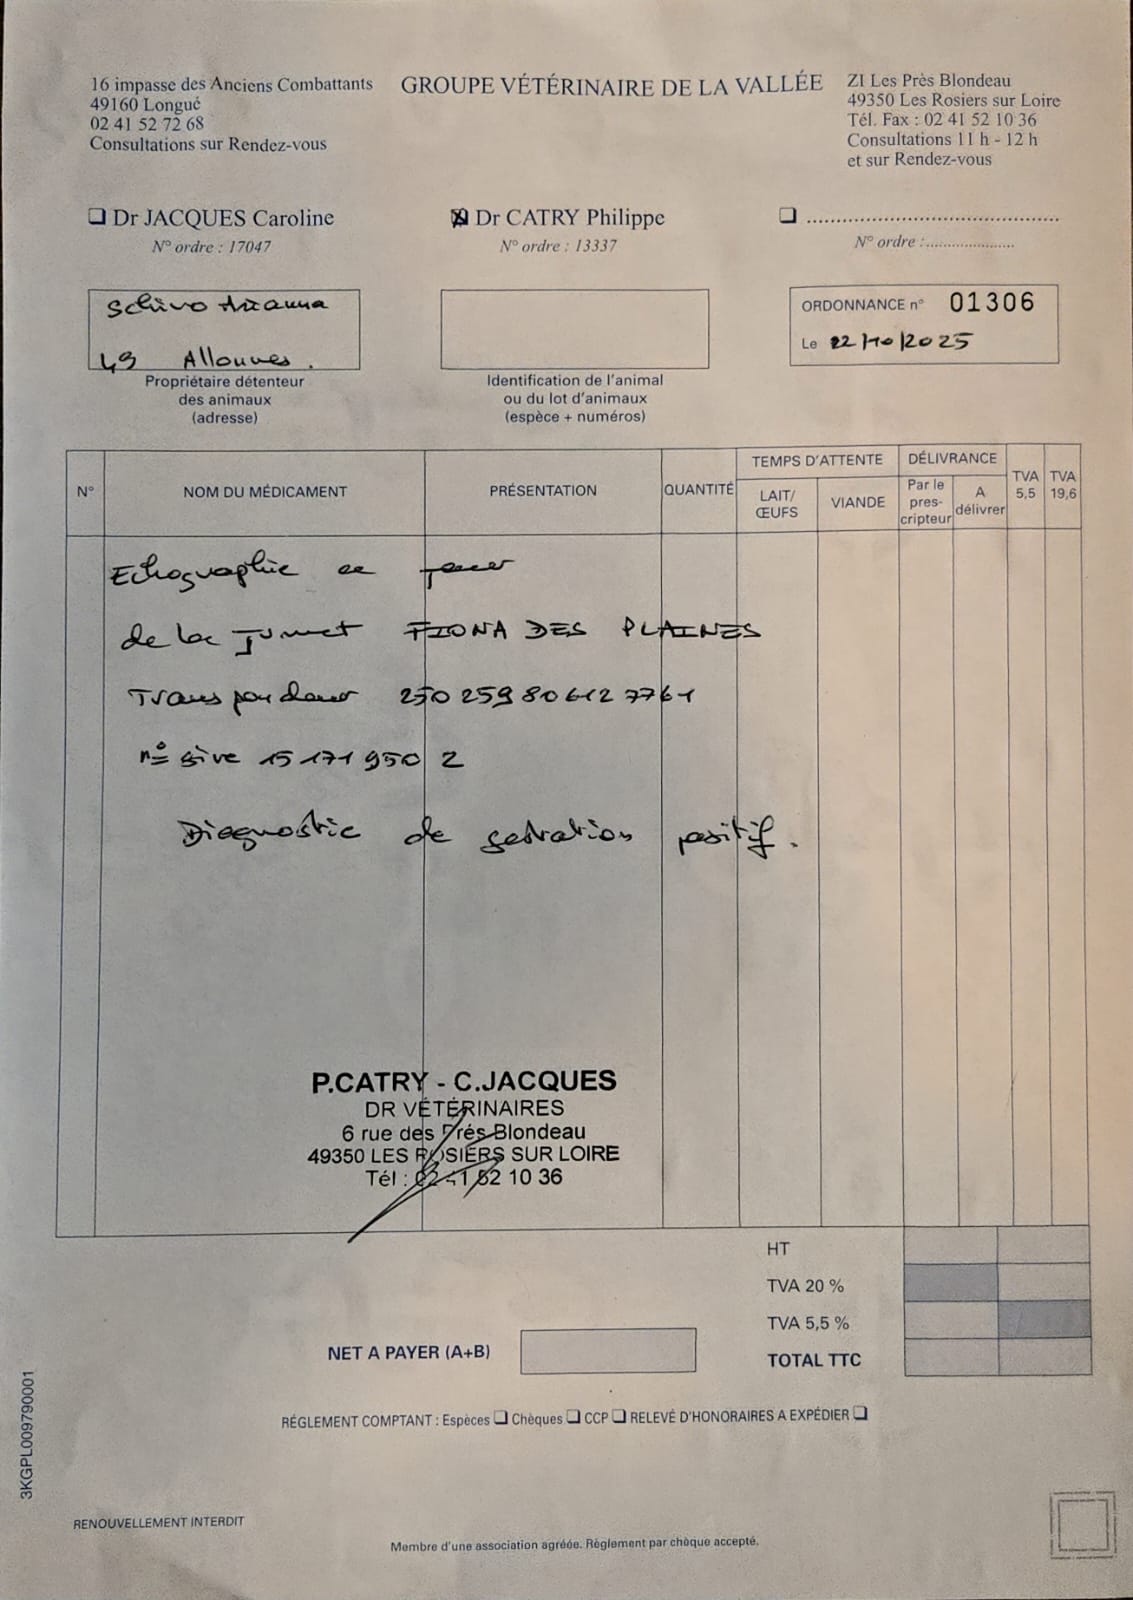 16 impasse des Anciens Combattants
49160 Longué
02 41 52 72 68
Consultations sur Rendez-vous
GROUPE VÉTÉRINAIRE DE LA VALLÉE
ZI Les Près Blondeau
49350 Les Rosiers sur Loire
Tél. Fax : 02 41 52 10 36
Consultations 11 h - 12 h
et sur Rendez-vous
Dr JACQUES Caroline
N° ordre : 17047
Dr CATRY Philippe
N° ordre : 13337
N° ordre :
Schivo Arianna
49 Allonnes.
Propriétaire détenteur
des animaux
(adresse)
Identification de l'animal
ou du lot d'animaux
(espèce + numéros)
ORDONNANCE n° 01306
Le 22/10/2025
N°
NOM DU MÉDICAMENT
PRÉSENTATION
QUANTITÉ
TEMPS D'ATTENTE
LAIT/
ŒUFS
VIANDE
DÉLIVRANCE
Par le
pres-
cripteur
A
délivrer
TVA
5,5
TVA
19,6
Echographie ce
de la Jument FIONA DES PLAINES
Transpondeur
n° sire 15 171 950 Z
Diagnostic de gestation positif.
P.CATRY - C.JACQUES
DR VÉTÉRINAIRES
6 rue des Prés Blondeau
49350 LES ROSIERS SUR LOIRE
Tél : 02 41 52 10 36
HT
TVA 20 %
TVA 5,5 %
TOTAL TTC
NET A PAYER (A+B)
RÉGLEMENT COMPTANT : Espèces Chèques CCP RELEVÉ D'HONORAIRES A EXPÉDIER
3KGPL009790001
RENOUVELLEMENT INTERDIT
Membre d'une association agréée. Règlement par chèque accepté.